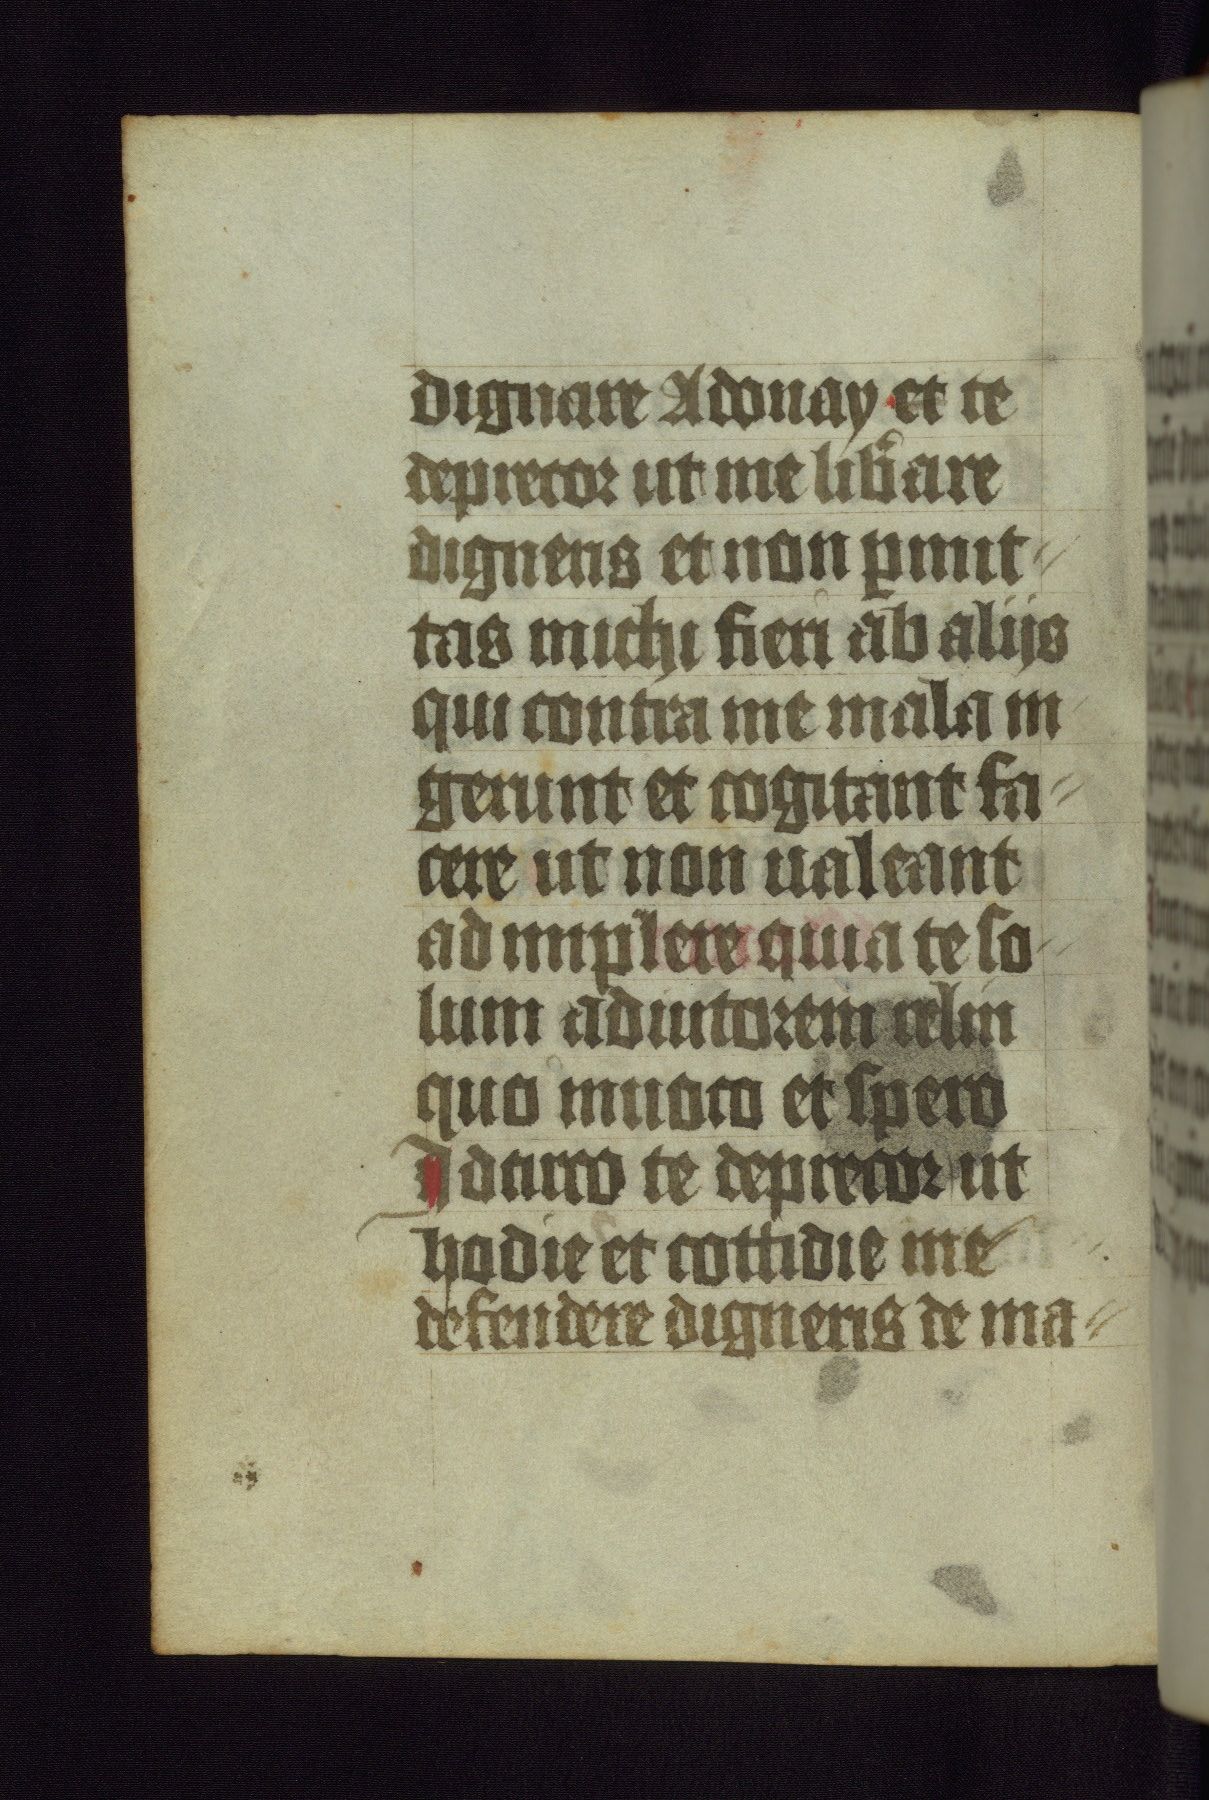 dignare Adonay et te
deprecor ut me lib̾are
digneris et non ꝑmit
tas michi fieri ab alijs
qui contra me mala in
gerunt et cogitant fa
cere ut non ualeant
adimplere quia te so
lum adiutorem relin
quo inuoco et spero
Idcirco te deprecor ut
hodie et cottidie me
defendere digneris de ma